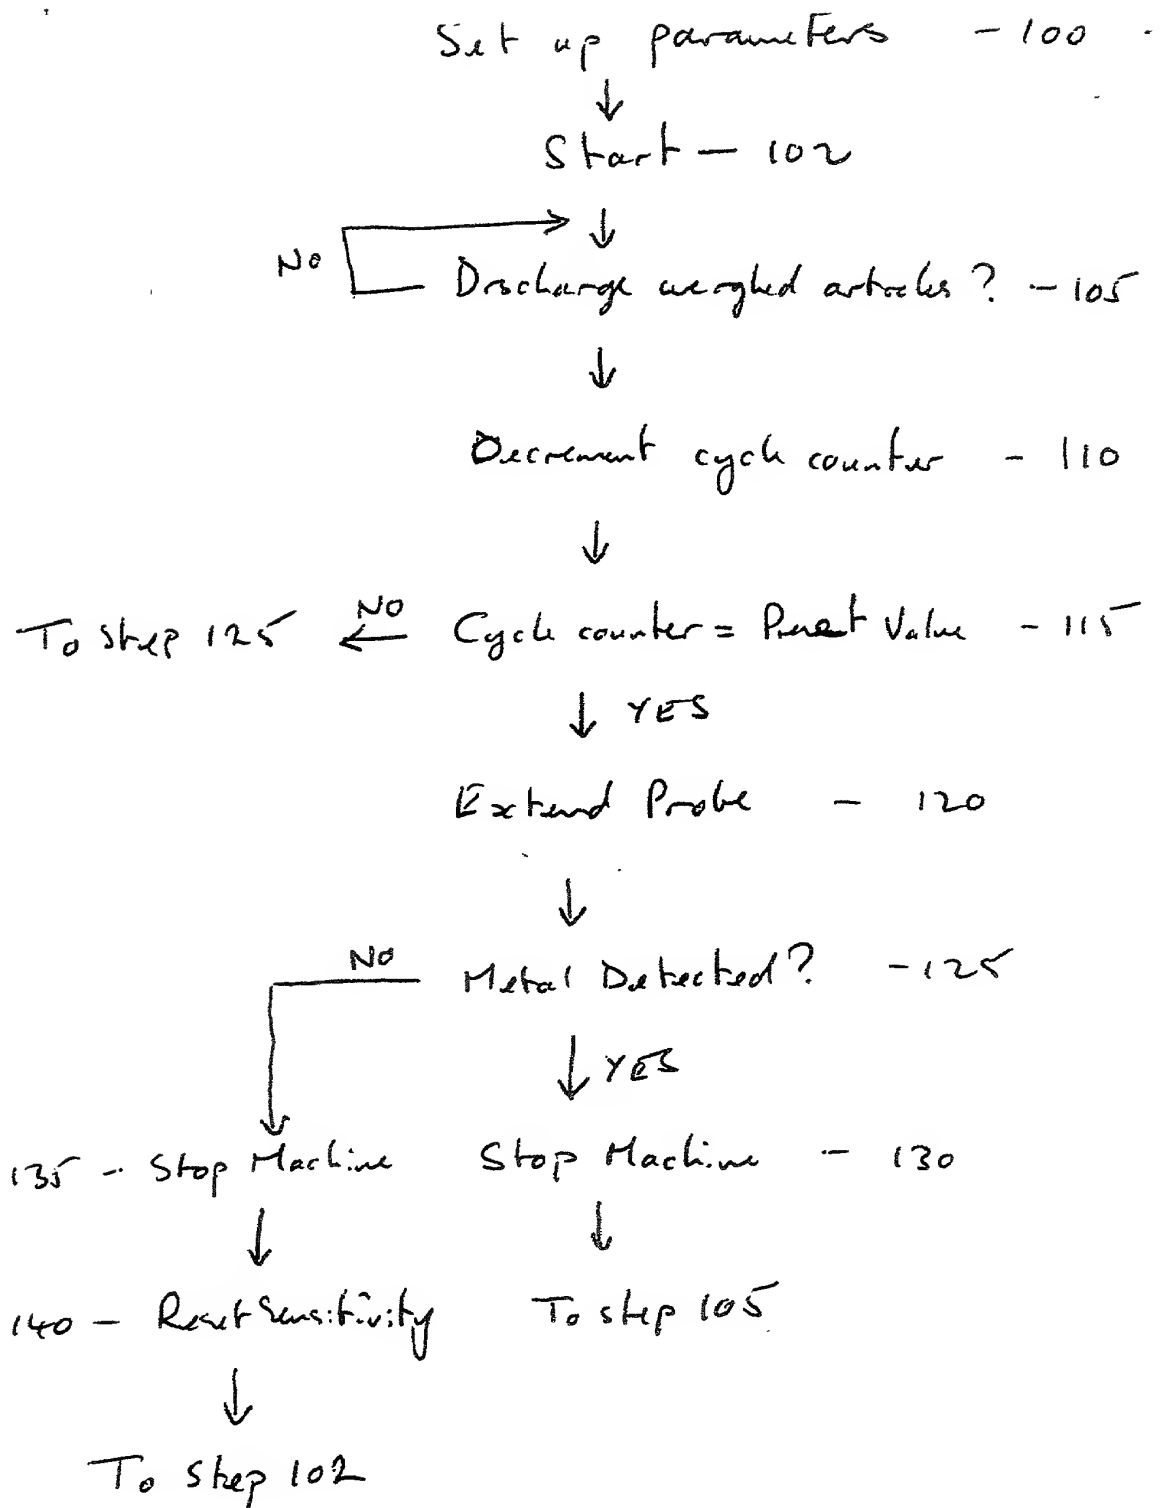 Set up parameters - 100
Start - 102
NO
Discharge weighed articles? - 105
Decrement cycle counter - 110
To step 125 NO Cycle counter = Preset Value - 115
YES
Extend Probe - 120
NO
Metal Detected? - 125
YES
135 - Stop Machine Stop Machine - 130
140 - Reset Sensitivity To step 105
To step 102